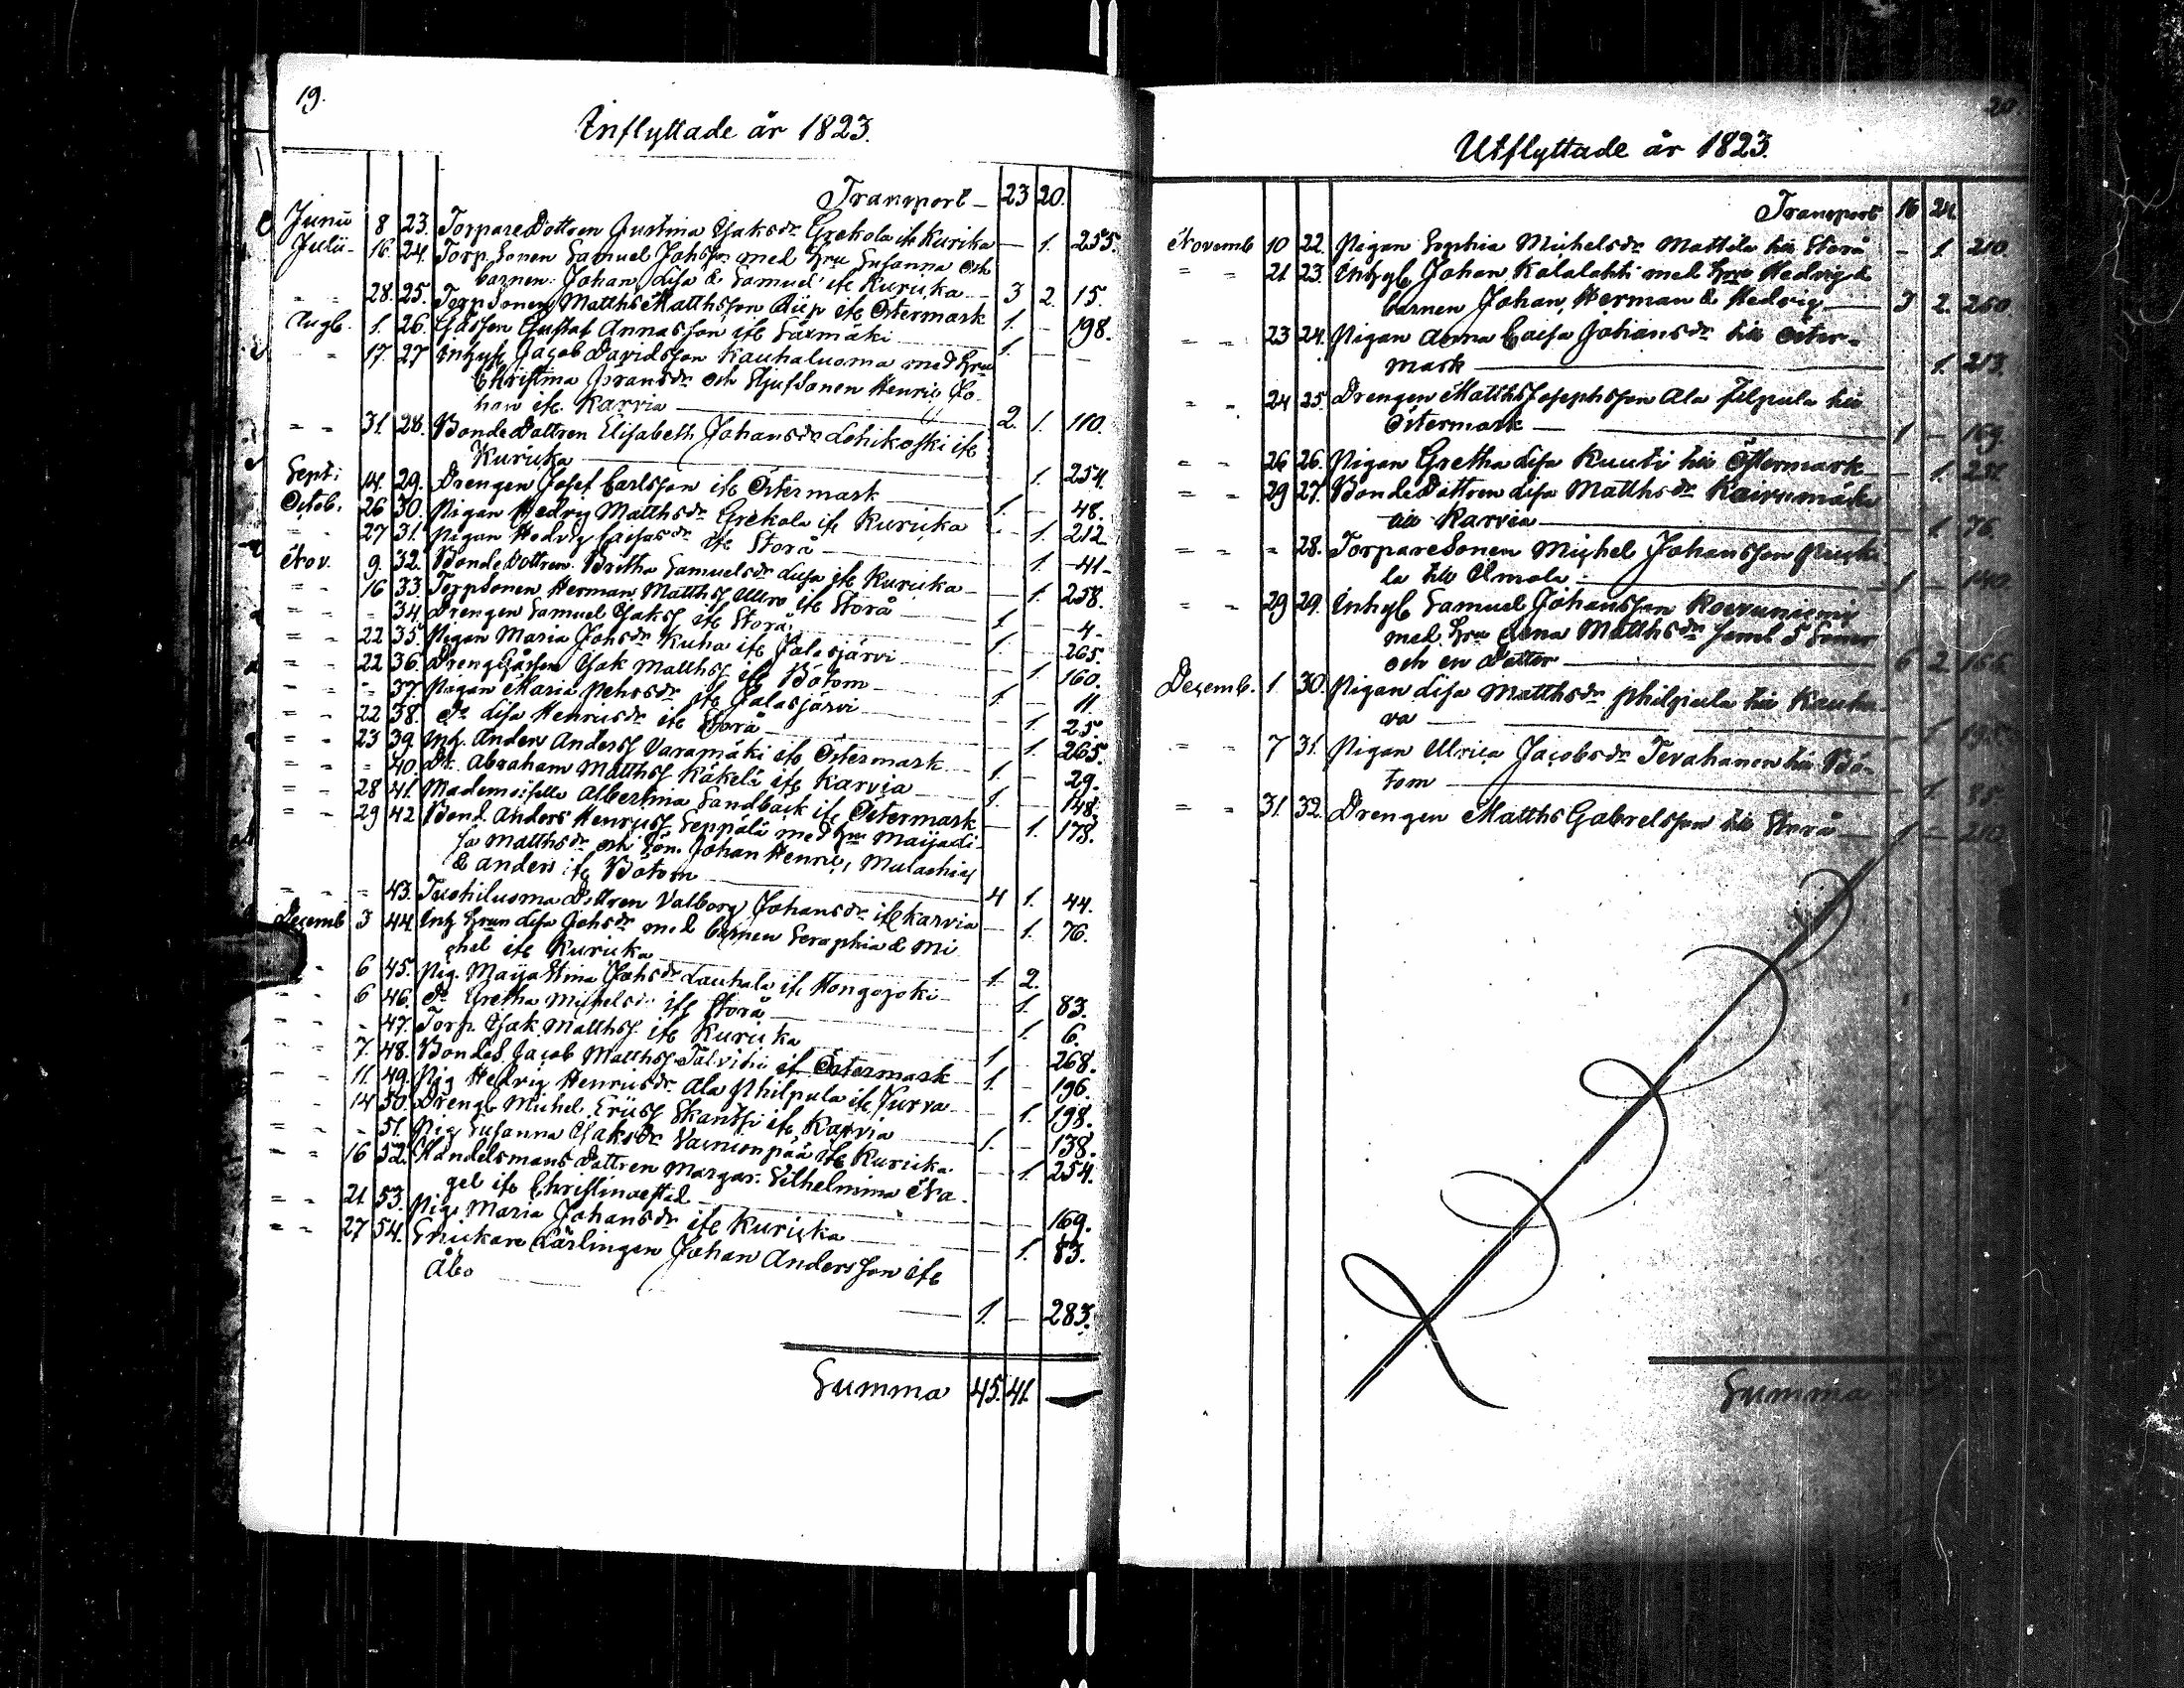 19.
Inflyttade år 1823.
Transport — 23 20.
Junii 8 23. Torpare Dottren Justina Isaksdr Grekola ifr Kurika — 1. 255.
Julii 16. 24. Torp. Sonen Samuel Johsson med Hru Susanna och
barnen Johan Lisa & Samuel ifr Kuricka — 3 2. 15.
" " 28. 25. Torp Sonen Matths Matthsson ifr Östermark 1. — 198.
Augt. 1. 26. Gustaf Annasson ifr 1. — —
" " 17. 27 Inhys. Jacob Davidsson Kauhaluoma med Hru
Christina och Styfsonen Henric Jo-
han ifr. Karvia — 2. 1. 110.
" " 31. 28. Bonde Dottren Elisabeth Johansdr Lohikoski ifr
Kuricka — 1. 254.
Sept: 14. 29. Drengen Josef Carlsson ifr Östermark 1. — 48.
Octob. 26 30. Pigan Hedvig Matthsdr Grekola ifr Kuricka — 1. 212.
" 27 31. Pigan Hedvig Caisasdr ifr Storå — 1. 41.
Nov. 9. 32. Bonde Dottren Britha Samuelsdr Lusa ifr Kuricka — 1. 258.
" 16 33. Torp Sonen Herman Matthss ifr Storå 1. — 4.
" " - 34. Drengen Samuel Isakss ifr Storå 1. — 265.
" " 22 35. Pigan Maria Johsdr Kuha ifr Jalasjärvi — 1. 160.
" " 22 36. Isak Matthss ifr Bötom 1. — 11
" " - 37. Pigan Maria Pehrsdr ifr Jalasjärvi — 1. 25.
" " 22 38. Do Lisa Henricsdr ifr Storå — 1. 265.
" " 23 39. Inh. Anders Anderss Varamäki ifr Östermark 1. — 29.
" " - 40. Dr. Abraham Matthss Käkelä ifr Karvia 1. — 148.
" " 28 41. Mademoiselle Albertina Sandback ifr Östermark — 1. 178.
" " 29 42. Bond. Anders Henricss Seppälä med Hru Maija Li-
sa Matthsdr och Sön. Johan Henric, Malachias
& Anders ifr Bötom 4 1. 44.
" " - 43. Dottren Valborg Johansdr ifr Karvia — 1. 76.
Decemb 3 44. Inh Hrun Lisa Johsdr med barnen Seraphia & Mi
chel ifr Kuricka 1. 2.
" 6 45. Pig. Maija Stina Johsdr Lauhala ifr Hongojoki — 1. 83.
" " 6 46. Do Gretha Michelsdr ifr Storå — 1. 6.
" " - 47. Torp. Isak Matthss ifr Kuricka 1 — 268.
" " 7. 48. Bonde S. Jacob Matthss Talvitie ifr Östermark 1. — 196.
" " 11. 49. Pig Hedvig Henricsdr Ala Philpula ifr Jurva — 1. 198.
" " 14 50. Dreng Michel Ericss Skantsi ifr Karvia 1. — 138.
" " - 51. Pig Susanna Isaksdr Vainionpää ifr Kuricka — 1. 254.
" " 16 52. Handelsmans Dottren Margar. Vilhelmina Na-
gel ifr Christinaestad — — 169.
" " 21. 53. Pig. Maria Johansdr ifr Kuricka — 1. 83.
" " 27 54. Snickare Lärlingen Johan Andersson ifr
Åbo
— 1. — 283.
Summa 45. 41. —
20.
Utflyttade år 1823.
Transport 16 24.
Novemb 10 22. Pigan Sophia Michelsdr Mattila till Storå — 1. 210.
" " 21 23. Inhys Johan Kalalahti med Hru Hedvig &
barnen Johan, Herman & Hedvig — 3 2. 260
" " 23 24. Pigan Anna Caisa Johansdr till Öster-
mark — 1. 213.
" " 24 25. Drengen Matths Josephsson Ala Filpula till
Östermark — 1 — 169.
" " 26 26. Pigan Gretha Lisa Kuuti till Östermark — 1.
" " 29 27. Bonde Dottren Lisa Matthsdr
till Karvia — 1. 76.
" " " 28. Torpare Sonen Michel Johansson
la till Ilmola — 1 —
" " 29 29. Inhys Samuel Johansson
med Hru Anna Matthsdr samt 5 Söner
och en Dotter — 6 2
Decemb. 1 30. Pigan Lisa Matthsdr Philpula till Kauha-
va — 1
" " 7 31. Pigan Ulrica Jacobsdr Tevahanen till Bö-
tom — 1 85.
" " 31. 32. Drengen Matths Gabrelsson till Storå — 1 —
Summa